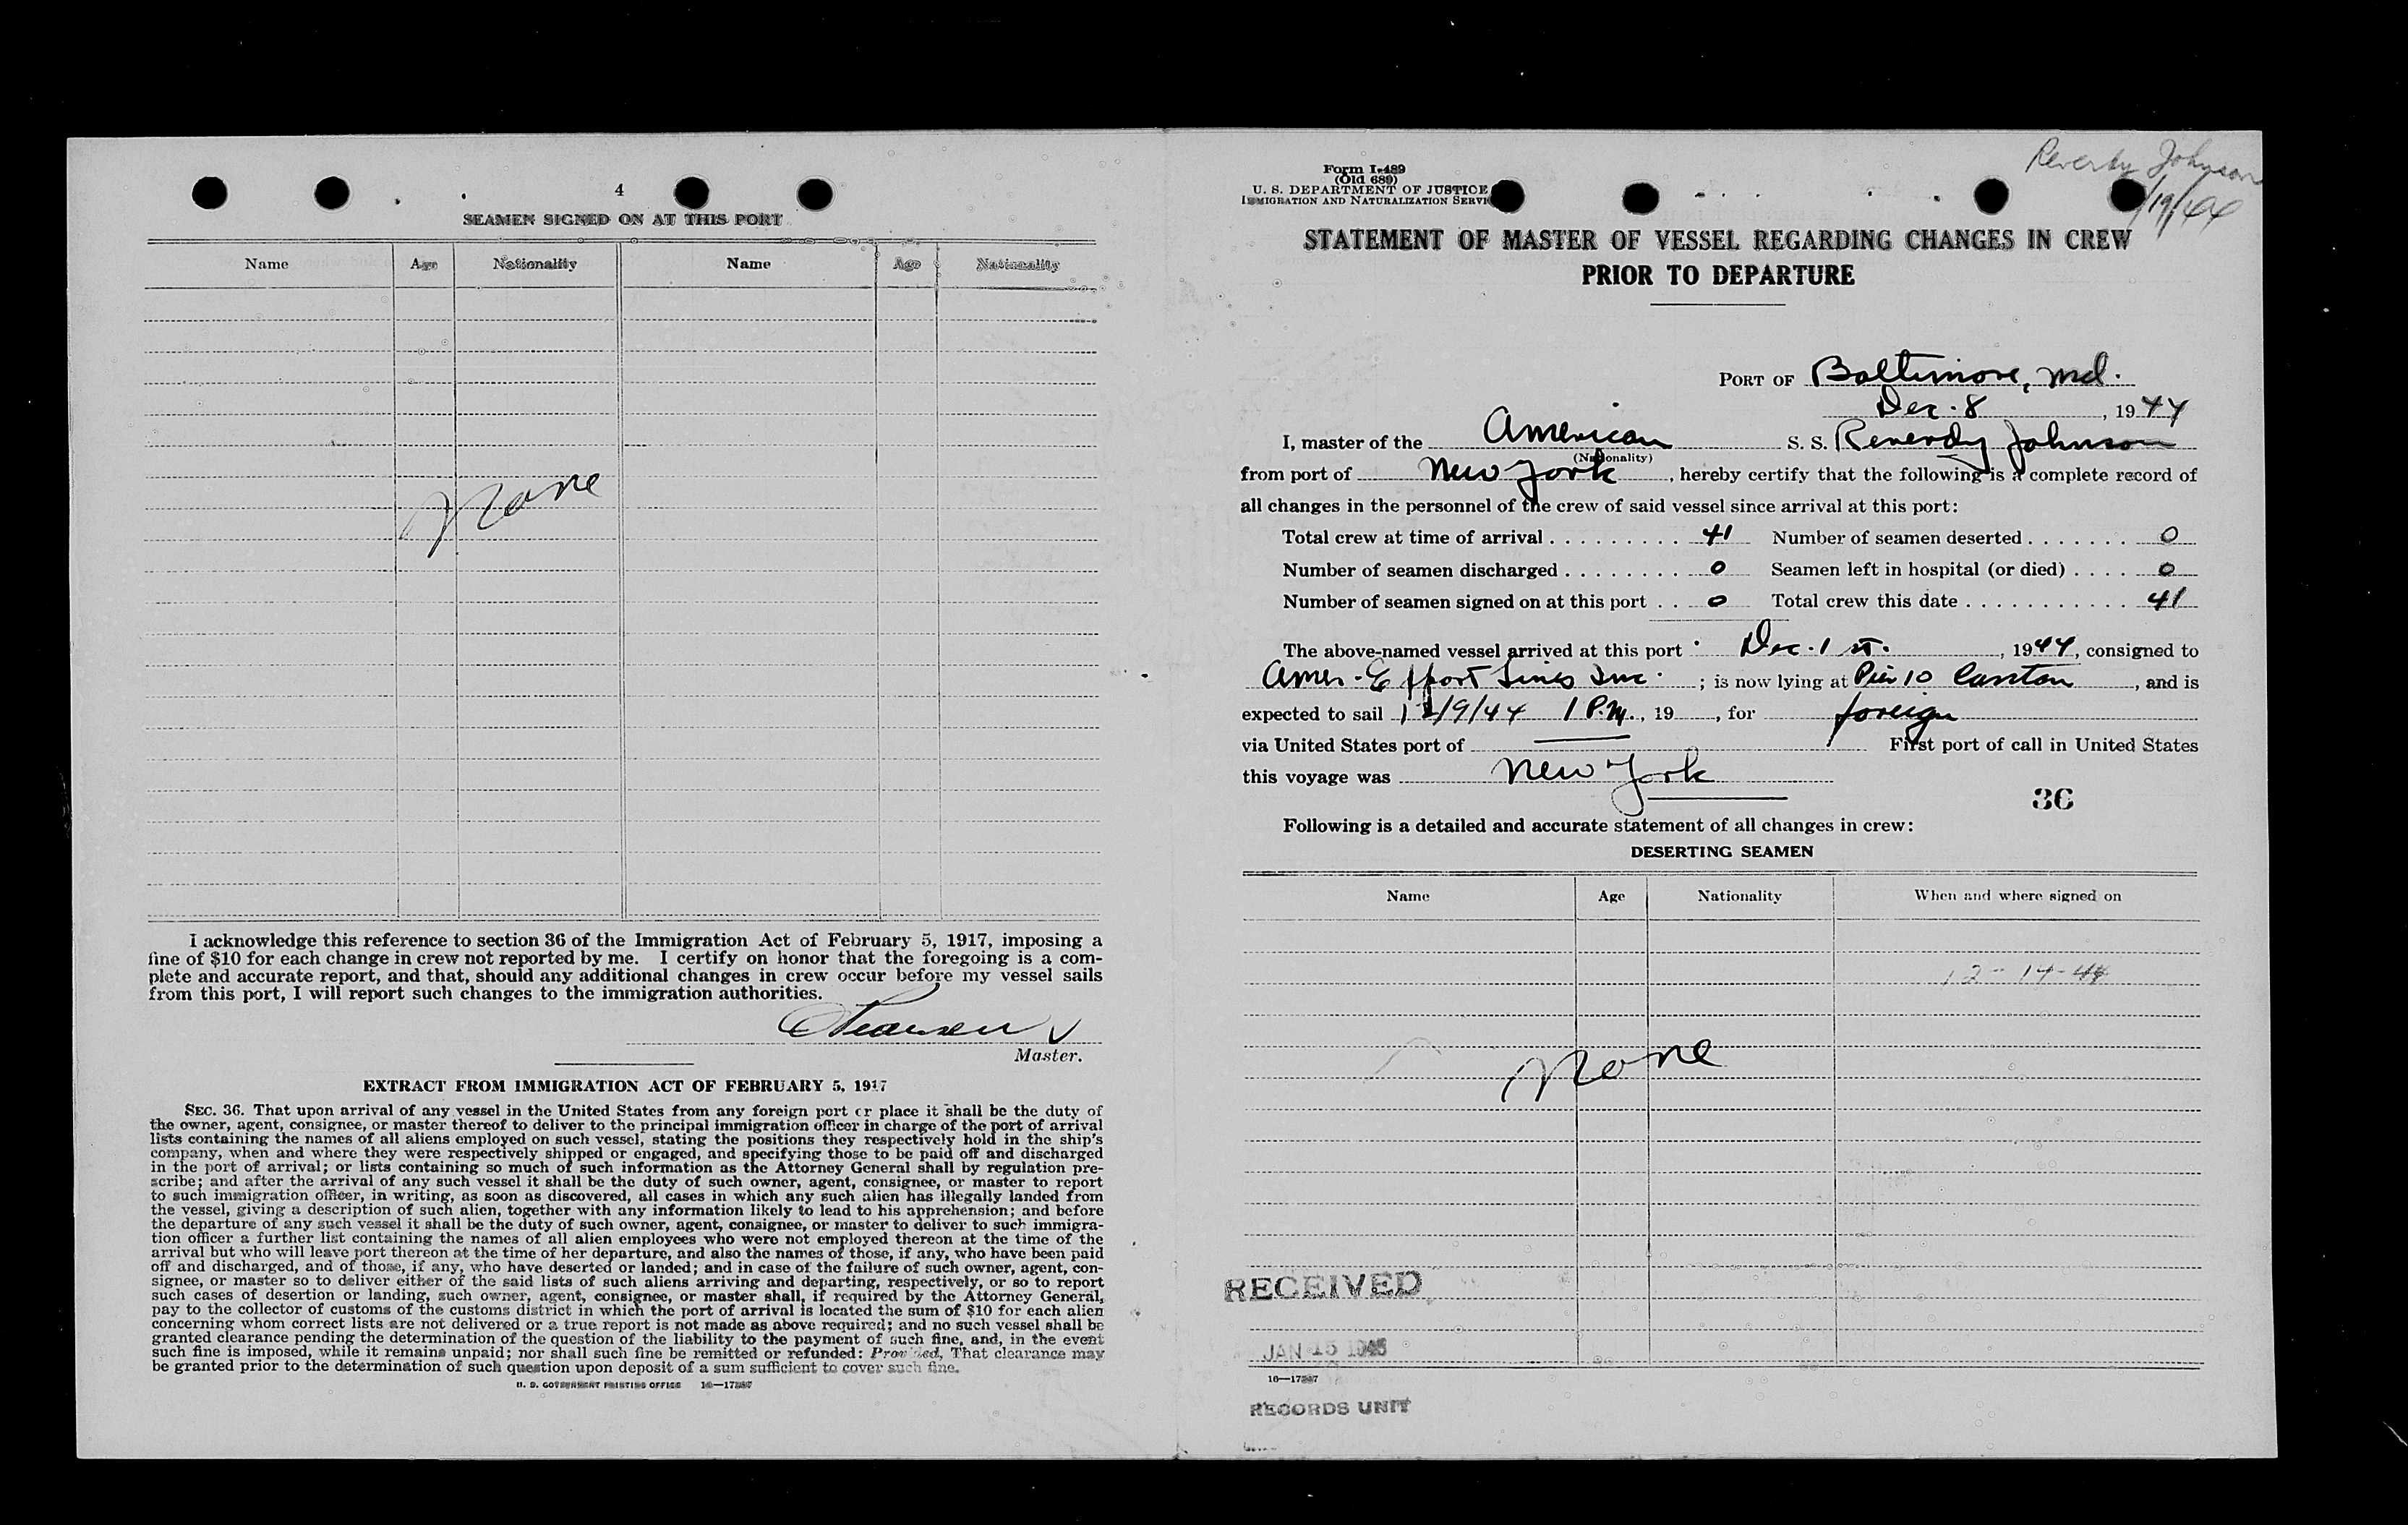 4
SEAMEN SIGNED ON AT THIS PORT
Name Age Nationality Name Age Nationality
None
I acknowledge this reference to section 36 of the Immigration Act of February 5, 1917, imposing a
fine of $10 for each change in crew not reported by me. I certify on honor that the foregoing is a com-
plete and accurate report, and that, should any additional changes in crew occur before my vessel sails
from this port, I will report such changes to the immigration authorities.
Master.
EXTRACT FROM IMMIGRATION ACT OF FEBRUARY 5, 1917
SEC. 36. That upon arrival of any vessel in the United States from any foreign port or place it shall be the duty of
the owner, agent, consignee, or master thereof to deliver to the principal immigration officer in charge of the port of arrival
lists containing the names of all aliens employed on such vessel, stating the positions they respectively hold in the ship's
company, when and where they were respectively shipped or engaged, and specifying those to be paid off and discharged
in the port of arrival; or lists containing so much of such information as the Attorney General shall by regulation pre-
scribe; and after the arrival of any such vessel it shall be the duty of such owner, agent, consignee, or master to report
to such immigration officer, in writing, as soon as discovered, all cases in which any such alien has illegally landed from
the vessel, giving a description of such alien, together with any information likely to lead to his apprehension; and before
the departure of any such vessel it shall be the duty of such owner, agent, consignee, or master to deliver to such immigra-
tion officer a further list containing the names of all alien employees who were not employed thereon at the time of the
arrival but who will leave port thereon at the time of her departure, and also the names of those, if any, who have been paid
off and discharged, and of those, if any, who have deserted or landed; and in case of the failure of such owner, agent, con-
signee, or master so to deliver either of the said lists of such aliens arriving and departing, respectively, or so to report
such cases of desertion or landing, such owner, agent, consignee, or master shall, if required by the Attorney General,
pay to the collector of customs of the customs district in which the port of arrival is located the sum of $10 for each alien
concerning whom correct lists are not delivered or a true report is not made as above required; and no such vessel shall be
granted clearance pending the determination of the question of the liability to the payment of such fine, and, in the event
such fine is imposed, while it remains unpaid; nor shall such fine be remitted or refunded: Provided, That clearance may
be granted prior to the determination of such question upon deposit of a sum sufficient to cover such fine.
U. S. GOVERNMENT PRINTING OFFICE
Form I-489
(Old 689)
U. S. DEPARTMENT OF JUSTICE
IMMIGRATION AND NATURALIZATION SERVI
Reverdy Johnson
/19/44
STATEMENT OF MASTER OF VESSEL REGARDING CHANGES IN CREW
PRIOR TO DEPARTURE
PORT OF Baltimore, Md.
Dec. 8, 1944
I, master of the American S. S. Reverdy Johnson
(Nationality)
from port of New York, hereby certify that the following is a complete record of
all changes in the personnel of the crew of said vessel since arrival at this port:
Total crew at time of arrival . . . . . . . . . 41 Number of seamen deserted . . . . . . . 0
Number of seamen discharged . . . . . . . . 0 Seamen left in hospital (or died) . . . . 0
Number of seamen signed on at this port . . 0 Total crew this date . . . . . . . . . . . 41
The above-named vessel arrived at this port Dec. 1 st., 1944, consigned to
Amer. Export Lines Inc.; is now lying at Pier 10 Canton, and is
expected to sail 12/9/44 1 P.M., 19 , for foreign
via United States port of First port of call in United States
this voyage was New York
36
Following is a detailed and accurate statement of all changes in crew:
DESERTING SEAMEN
Name Age Nationality When and where signed on
12-14-44
None
RECEIVED
JAN 15 1945
RECORDS UNIT